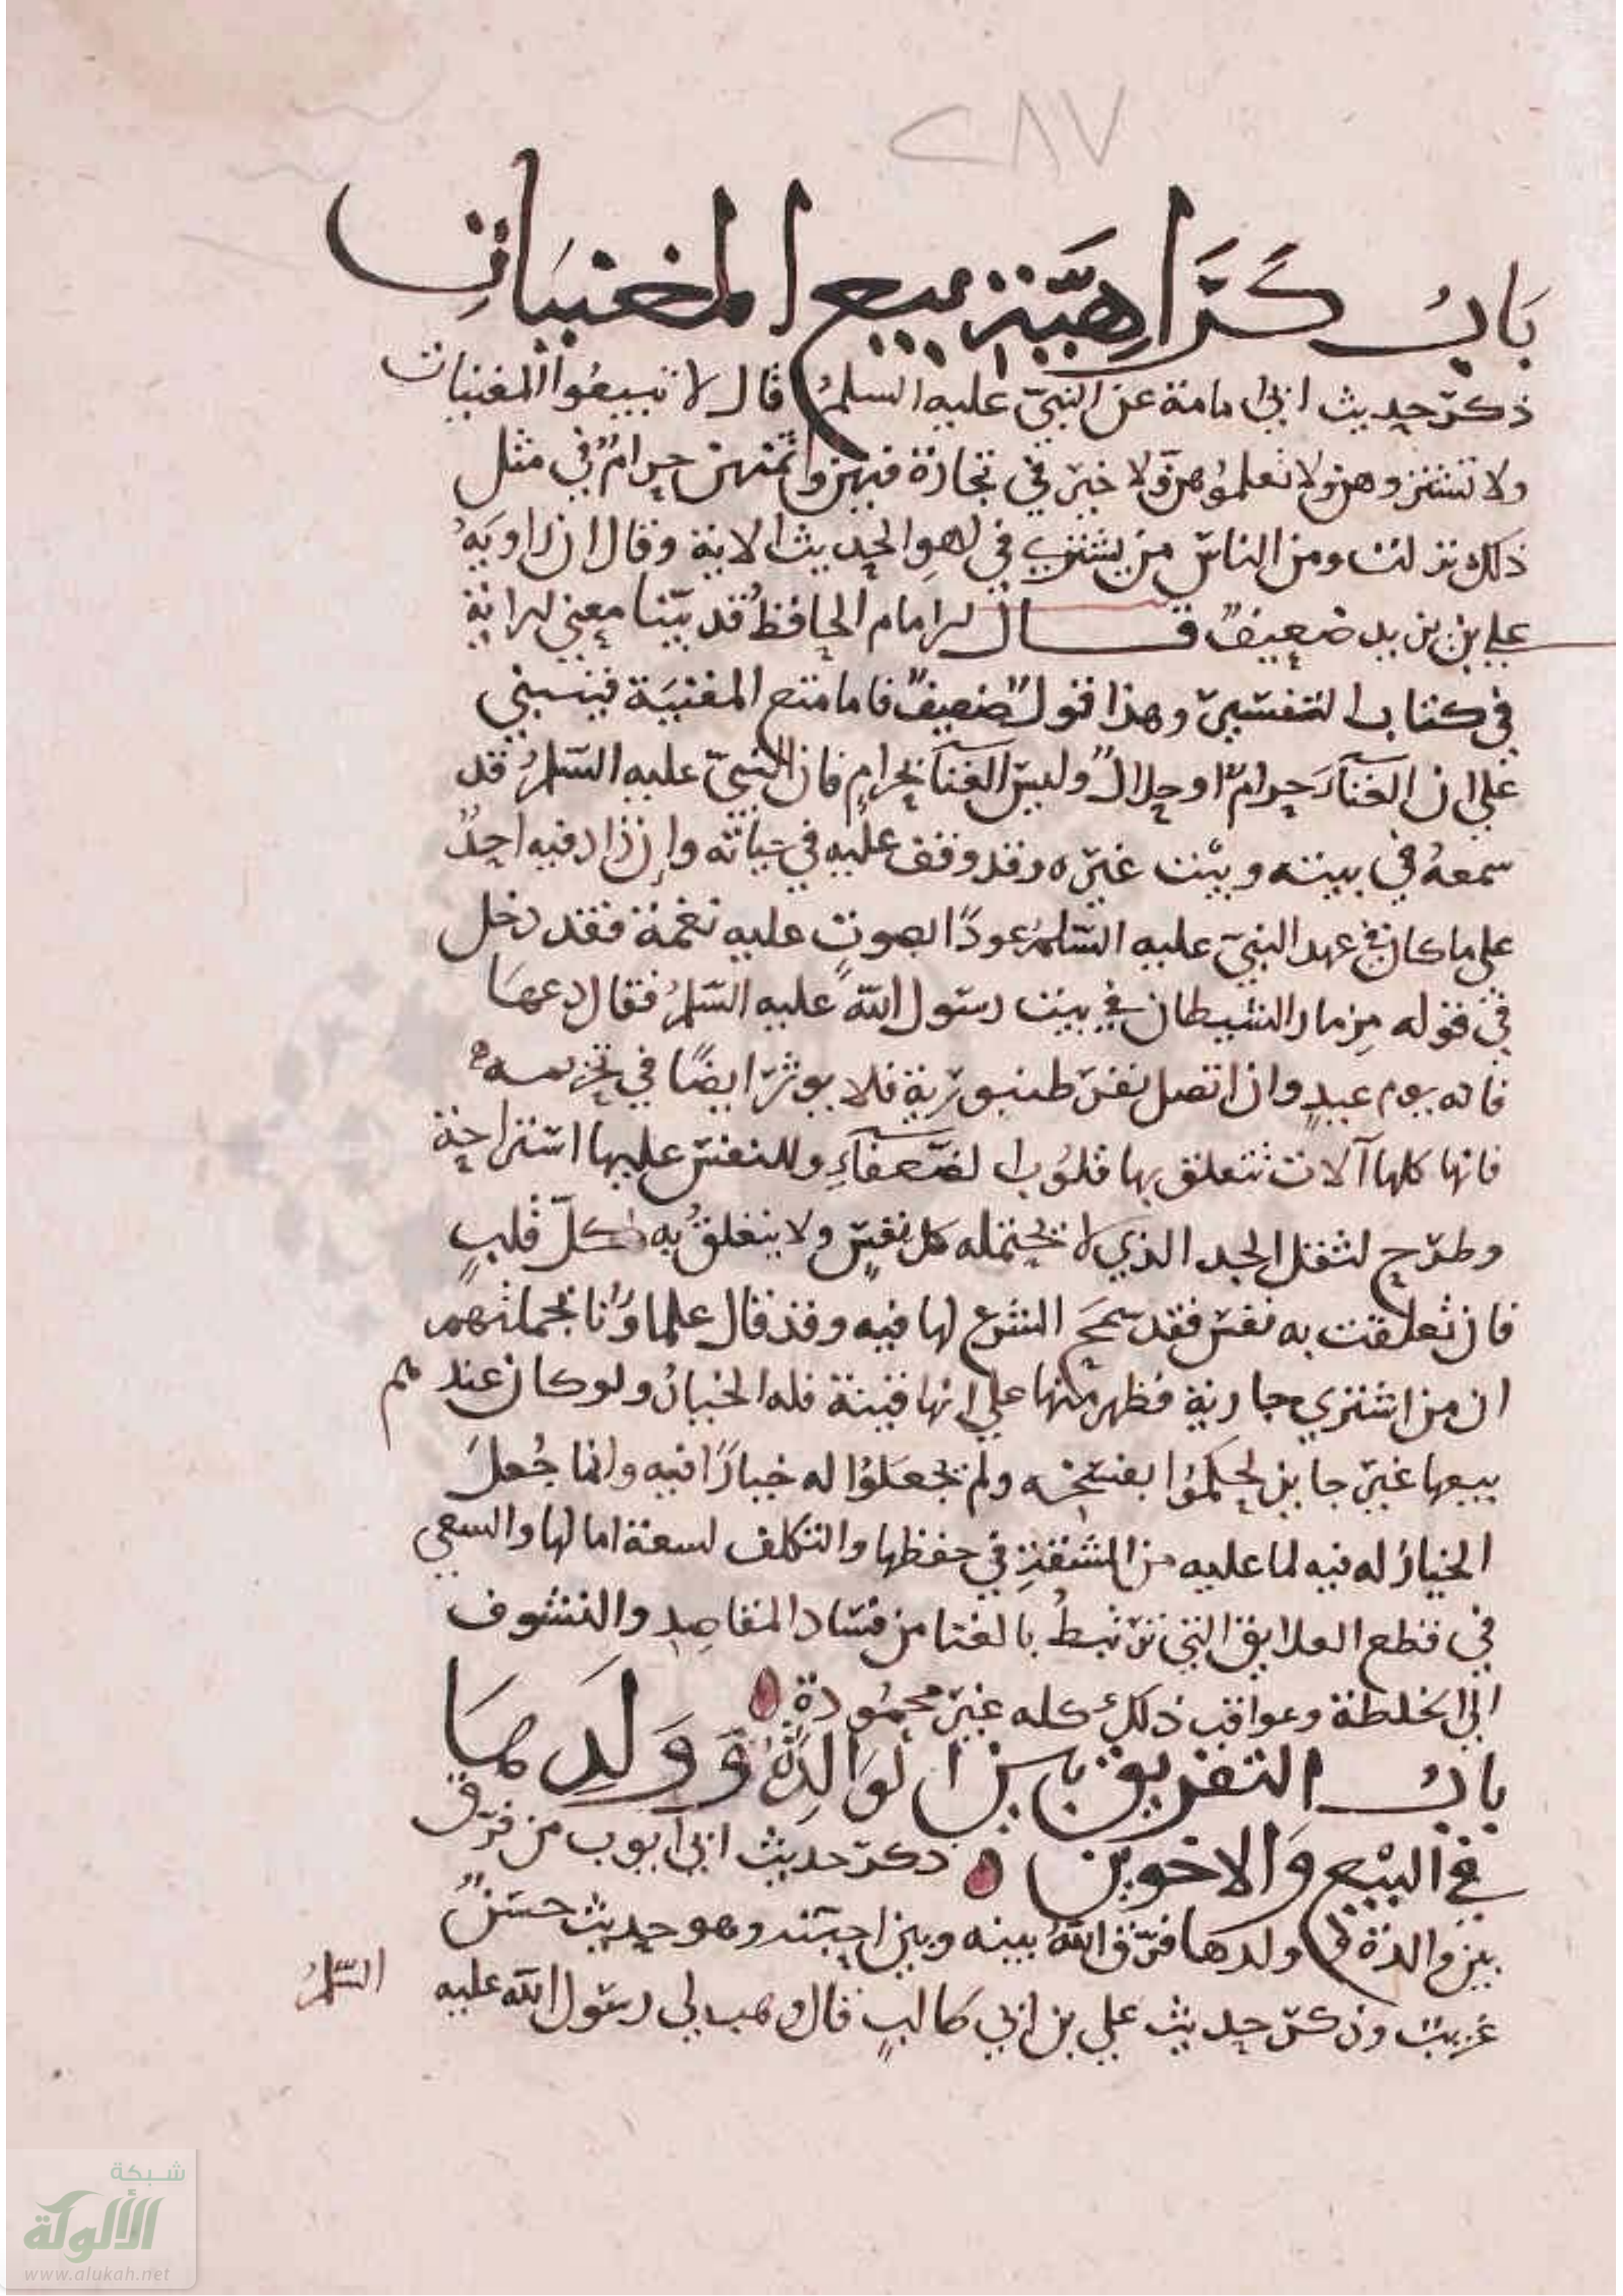 ٢٨٧
بَابُ كَرَاهِيَّةِ بيع المغنيات
ذكر حديث ابي امامة عن النبيّ عليه السلمُ قال لا تبيعُوا المغنيات
ولا تشتروهن ولا تعلموُهن ولا خير في تجارة فيهن وثمنهن حرامٌ في مثل
ذلك نزلت ومن الناس من يشتري في لهوِ الحديث الاية وقال ان راويَهُ
علي بن يزيد ضعيفٌ قال الامام الحافظُ قد بيّنا معني الاية
في كتاب التفسير وهذا قولٌ ضعيفٌ فاما منع المغنيَة فينبني
علي ان الغنآءَ حرامٌ او حلالٌ وليس الغنآ بحرامٍ فان النبيّ عليه السّلمُ قد
سمعهُ في بيته وبيْت غيره وقد وقف عليه في حياته وإن زاد فيه احدٌ
علي ما كان في عهد النبيّ عليه السّلمُ عودًا بصوتٍ عليه نغمة فقد دخل
في قوله مِزمار الشيطان في بيت رسول الله عليه السّلمُ فقال دعهَا
فانه يوم عيدٍ وان اتصل نقر طنبورية فلا يوثر ايضًا في تحريمه
فانها كلها آلات تتعلق بها قلُوب الضّعفآءِ وللنفس عليها استراحة
وطرح لثقل الجد الذي لا تحتمله كل نفسٍ ولا يتعلقُ به كلّ قلبٍ
فان تعلقت به نفس فقد سمحَ الشرع لها فيه وقد قال علماوُنا بجملتهم
ان من اشتري جارية فظهر منها علي انها قينة فله الخيارُ ولو كان عندهم
بيعها غير جايز لحكمُوا بفسخه ولم يجعَلوُا له خيارًا فيه وانما جُعلَ
الخيارُ له فيه لما عليه من المشقةِ في حفظها والتكلف لسعة امالها والسعي
في قطع العلايق التي ترتبطُ بالغنا من فساد المقاصِدِ والتشوف
الي الخلطة وعواقب ذلك كله غير محمُودة
بابُ التفريق بين الوَالِدَةِ وَوَلَدِهَا
في البيْع وَالاخوين ذكر حديث ابي ايوب من فرّق
بين والدة وولدها فرّق اللهُ بينه وبين احبته وهو حديث حسَنٌ
غريبٌ وذكر حديث علي بن ابي طالبٍ قال وهب لي رسول الله عليه السّلمُ
شبكة
الألوكة
www.alukah.net